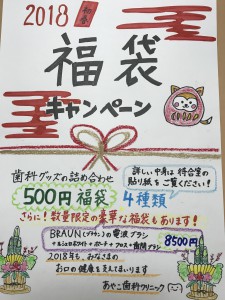 2018 初春
福袋
キャンペーン
歯科グッズの詰め合わせ
500円福袋
4種類
詳しい中身は待合室の
貼り紙をご覧ください!
さらに!数量限定の豪華な福袋もあります!
BRAUN(ブラウン)の電波ブラシ
+ルシェロホワイト+ポーチ+フロス+歯間ブラシ
8500円
2018年も、みなさまの
お口の健康を支えてまいります
あやこ歯科クリニック